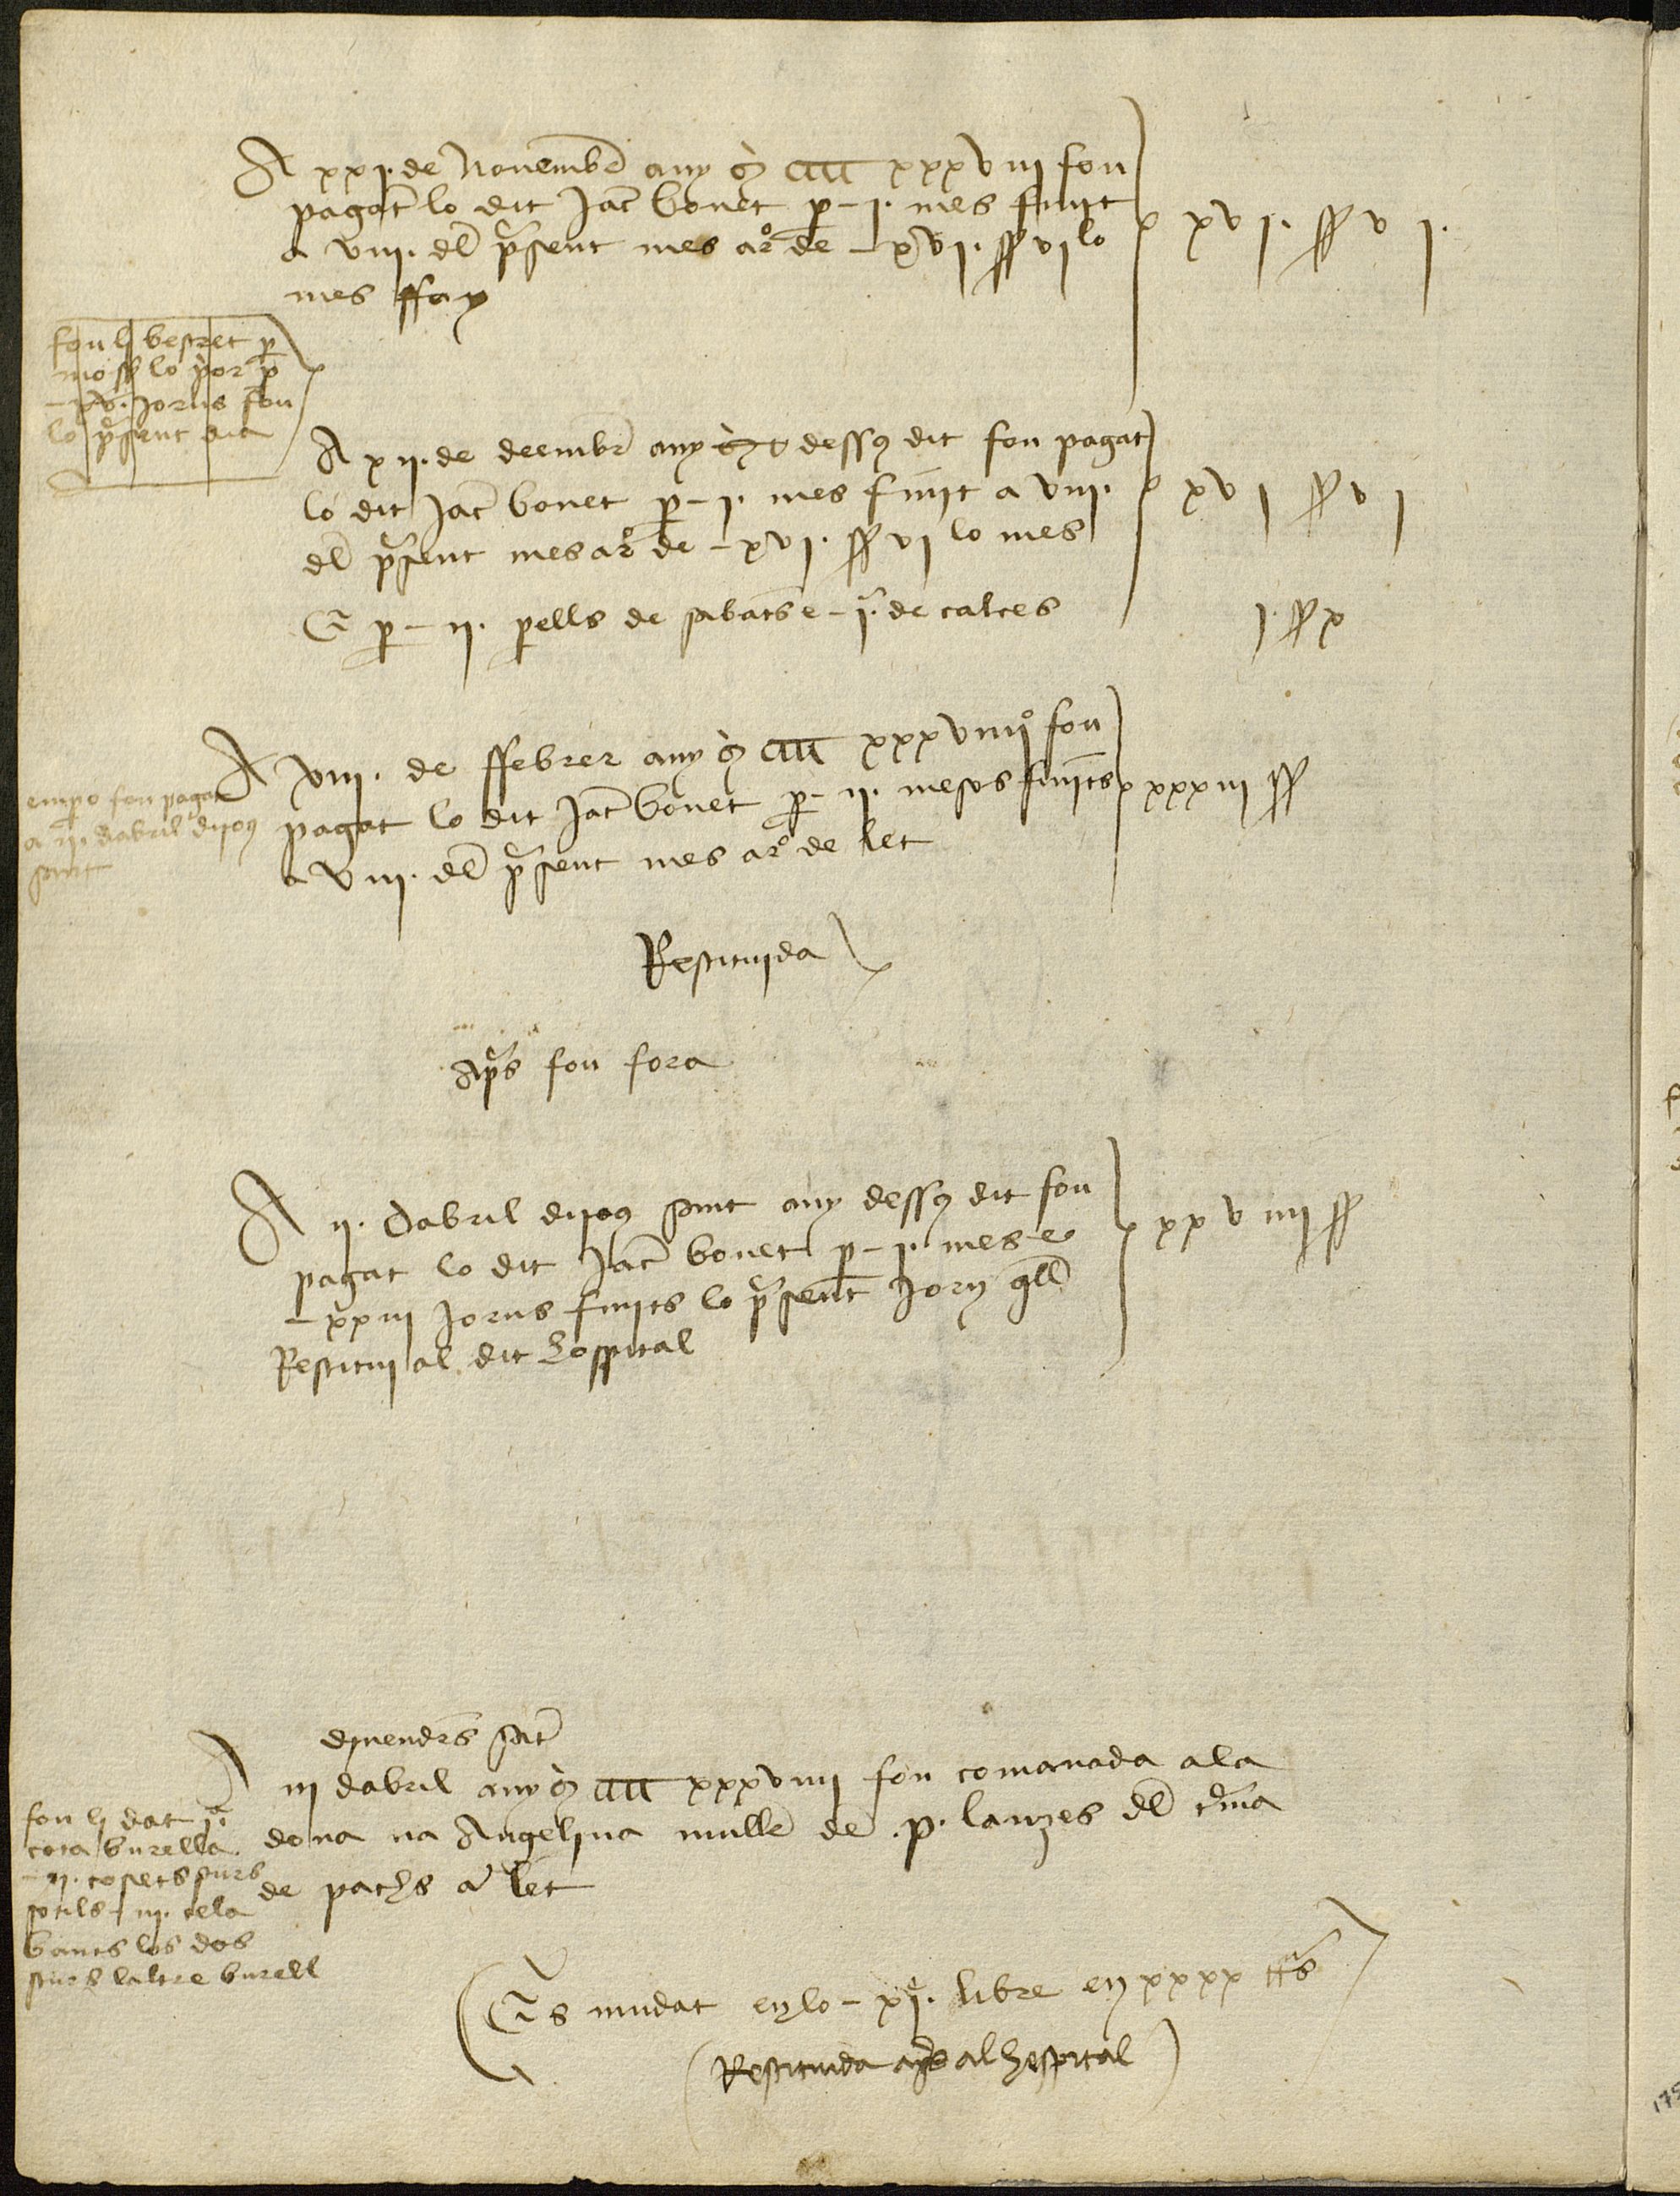 A xxj. de Novembr any M CCCC xxxviij fon
pagat lo dit Jac bonet p - j. mes finit
a viij. del pnt present mes a ro de - xvj. ss vj lo
mes ffay
xvj. ss vj.
fon li bestret p
moss lo prior p
- xv. jorns fon
lo present dia
A xij. de deembr any dessus dit fon pagat
lo dit Jac bonet p - j. mes finit a viij.
del present mes a ro de - xvj. ss vj lo mes
xvj ss vj
E p - ij. perells de sabates e - j. de calces
j. ss x
A viij. de ffebrer any M CCCC xxxviiij fon
pagat lo dit Jac bonet p - ij. mesos finits
a viij. del present mes a ro de let
xxxiij ss
empero fon pagat
a ij. dabril dijous
sant
Restituida
Apres fon fora
A ij. dabril dijous sant any dessus dit fon
pagat lo dit Jac bonet p - j. mes e
- xxiij jorns finits lo present jorn qll
Restitui al dit Hospital
xxviiij ss
divendres sat
A iij dabril any M CCCC xxxviiij fon comanada a la
dona na Angelina muller de .p. lanzes del tma
de pachs a let
fon li dat j.
cota burella
- ij. cosets purs
sotils - iij. tela
bants los dos
purs laltre burell
Es mudat en lo - xj. libre en xxxx ctes
Restituida apres al hospital